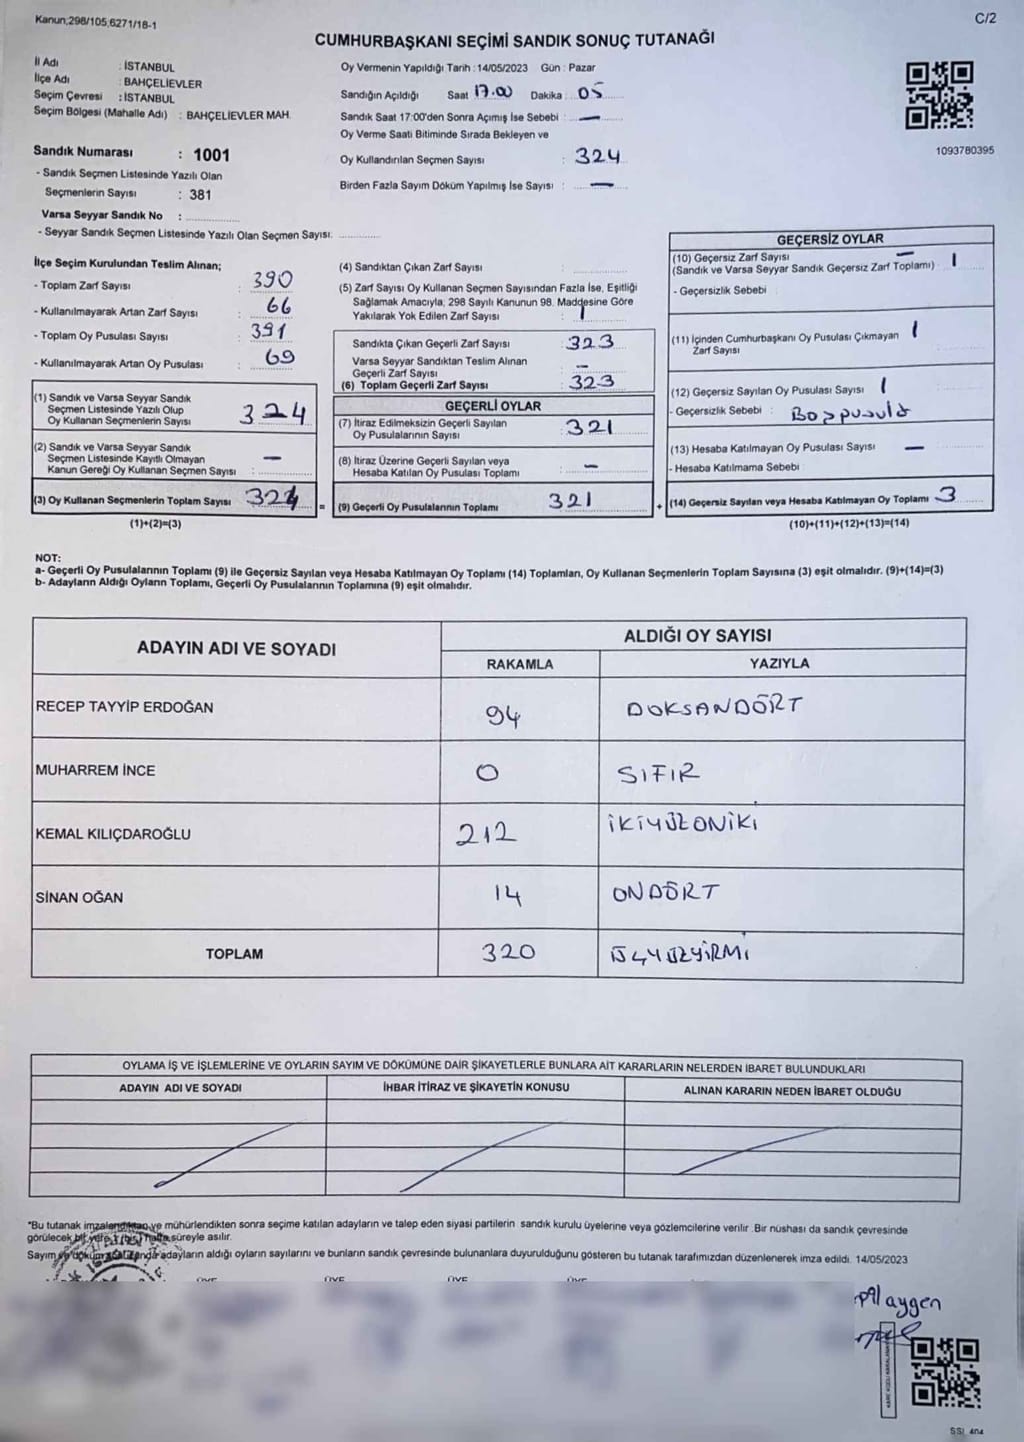 Kanun;298/105,6271/18-1
C/2
CUMHURBAŞKANI SEÇİMİ SANDIK SONUÇ TUTANAĞI
İl Adı : İSTANBUL
İlçe Adı : BAHÇELİEVLER
Seçim Çevresi : İSTANBUL
Seçim Bölgesi (Mahalle Adı) : BAHÇELİEVLER MAH.
Sandık Numarası : 1001
- Sandık Seçmen Listesinde Yazılı Olan
Seçmenlerin Sayısı : 381
Varsa Seyyar Sandık No :
- Seyyar Sandık Seçmen Listesinde Yazılı Olan Seçmen Sayısı:
Oy Vermenin Yapıldığı Tarih : 14/05/2023 Gün : Pazar
Sandığın Açıldığı Saat 17.00 Dakika : 05
Sandık Saat 17:00'den Sonra Açımış İse Sebebi : —
Oy Verme Saati Bitiminde Sırada Bekleyen ve
Oy Kullandırılan Seçmen Sayısı : 324
Birden Fazla Sayım Döküm Yapılmış İse Sayısı : —
1093780395
İlçe Seçim Kurulundan Teslim Alınan;
- Toplam Zarf Sayısı : 390
- Kullanılmayarak Artan Zarf Sayısı : 66
- Toplam Oy Pusulası Sayısı : 391
- Kullanılmayarak Artan Oy Pusulası : 69
(1) Sandık ve Varsa Seyyar Sandık
Seçmen Listesinde Yazılı Olup
Oy Kullanan Seçmenlerin Sayısı 324
(2) Sandık ve Varsa Seyyar Sandık
Seçmen Listesinde Kayıtlı Olmayan
Kanun Gereği Oy Kullanan Seçmen Sayısı : —
(3) Oy Kullanan Seçmenlerin Toplam Sayısı 324 =
(1)+(2)=(3)
(4) Sandıktan Çıkan Zarf Sayısı :
(5) Zarf Sayısı Oy Kullanan Seçmen Sayısından Fazla İse, Eşitliği
Sağlamak Amacıyla; 298 Sayılı Kanunun 98. Maddesine Göre
Yakılarak Yok Edilen Zarf Sayısı : 1
Sandıkta Çıkan Geçerli Zarf Sayısı : 323
Varsa Seyyar Sandıktan Teslim Alınan
Geçerli Zarf Sayısı : —
(6) Toplam Geçerli Zarf Sayısı : 323
GEÇERLİ OYLAR
(7) İtiraz Edilmeksizin Geçerli Sayılan
Oy Pusulalarının Sayısı : 321
(8) İtiraz Üzerine Geçerli Sayılan veya
Hesaba Katılan Oy Pusulası Toplamı : —
(9) Geçerli Oy Pusulalarının Toplamı 321 +
GEÇERSİZ OYLAR
(10) Geçersiz Zarf Sayısı —
(Sandık ve Varsa Seyyar Sandık Geçersiz Zarf Toplamı) : 1
- Geçersizlik Sebebi :
(11) İçinden Cumhurbaşkanı Oy Pusulası Çıkmayan 1
Zarf Sayısı
(12) Geçersiz Sayılan Oy Pusulası Sayısı 1
- Geçersizlik Sebebi : Boş pusula
(13) Hesaba Katılmayan Oy Pusulası Sayısı —
- Hesaba Katılmama Sebebi
(14) Geçersiz Sayılan veya Hesaba Katılmayan Oy Toplamı 3
(10)+(11)+(12)+(13)=(14)
NOT:
a- Geçerli Oy Pusulalarının Toplamı (9) ile Geçersiz Sayılan veya Hesaba Katılmayan Oy Toplamı (14) Toplamları, Oy Kullanan Seçmenlerin Toplam Sayısına (3) eşit olmalıdır. (9)+(14)=(3)
b- Adayların Aldığı Oyların Toplamı, Geçerli Oy Pusulalarının Toplamına (9) eşit olmalıdır.
ADAYIN ADI VE SOYADI
ALDIĞI OY SAYISI
RAKAMLA YAZIYLA
RECEP TAYYİP ERDOĞAN 94 DOKSANDÖRT
MUHARREM İNCE 0 SIFIR
KEMAL KILIÇDAROĞLU 212 İKİYÜZONİKİ
SİNAN OĞAN 14 ONDÖRT
TOPLAM 320 ÜÇYÜZYİRMİ
OYLAMA İŞ VE İŞLEMLERİNE VE OYLARIN SAYIM VE DÖKÜMÜNE DAİR ŞİKAYETLERLE BUNLARA AİT KARARLARIN NELERDEN İBARET BULUNDUKLARI
ADAYIN ADI VE SOYADI İHBAR İTİRAZ VE ŞİKAYETİN KONUSU ALINAN KARARIN NEDEN İBARET OLDUĞU
*Bu tutanak imzalandıktan ve mühürlendikten sonra seçime katılan adayların ve talep eden siyasi partilerin sandık kurulu üyelerine veya gözlemcilerine verilir .Bir nüshası da sandık çevresinde
görülecek bir yere 1 (bir) hafta süreyle asılır.
Sayım ve döküm adayların aldığı oyların sayılarını ve bunların sandık çevresinde bulunanlara duyurulduğunu gösteren bu tutanak tarafımızdan düzenlenerek imza edildi. 14/05/2023
ÜYE ÜYE ÜYE ÜYE
aygen